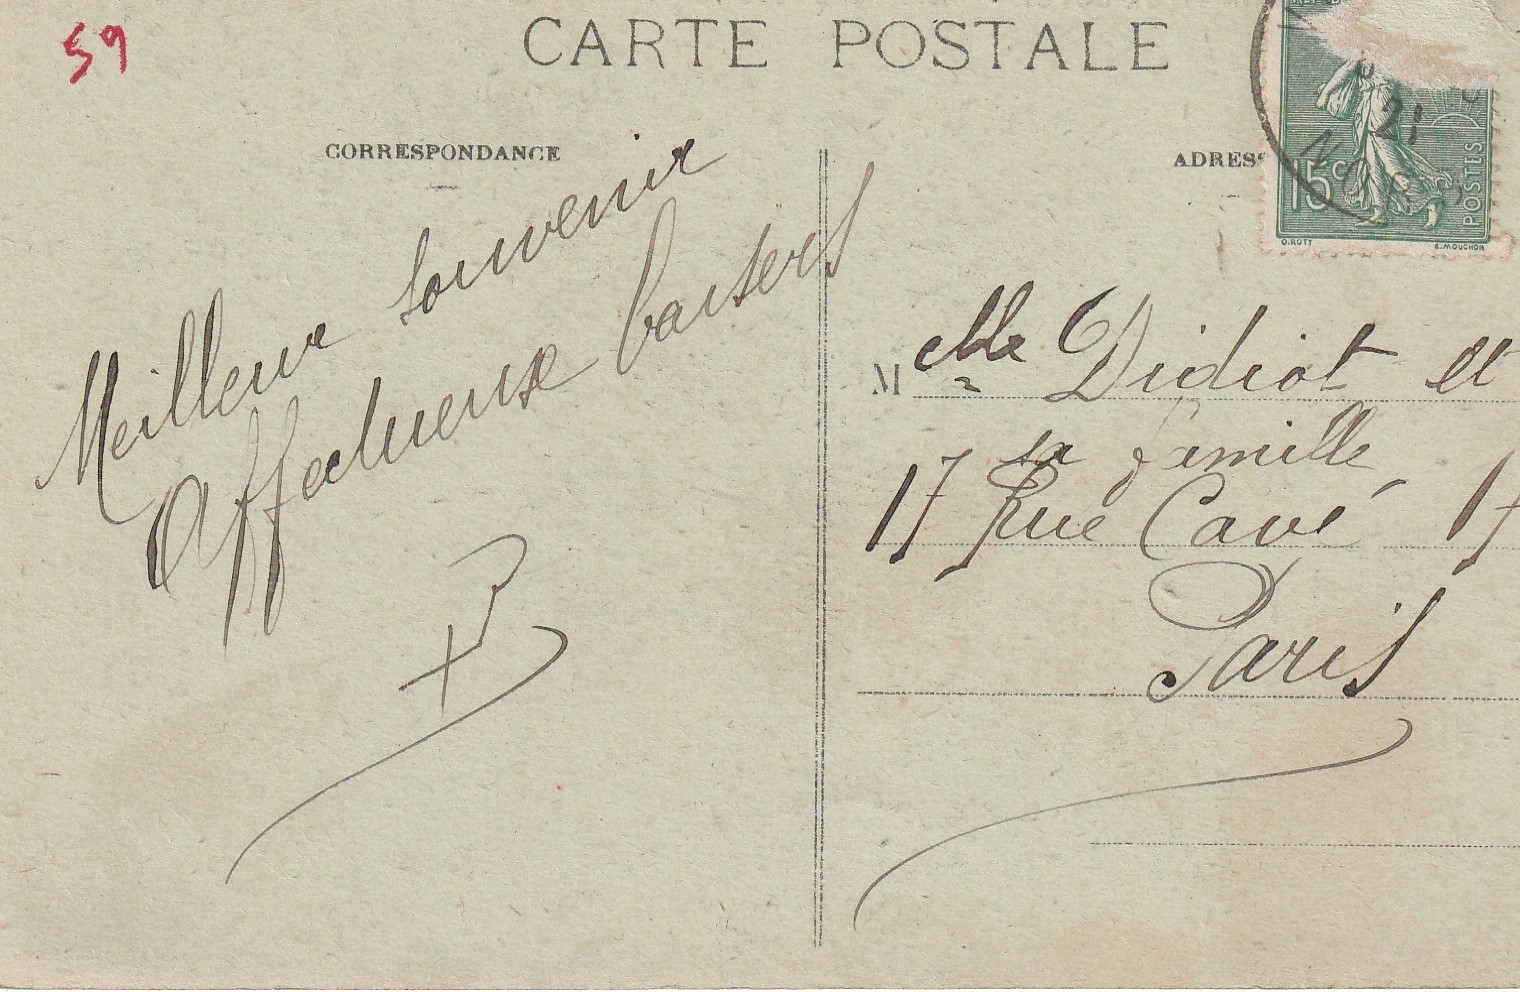 59
CARTE POSTALE
CORRESPONDANCE
ADRES
15c
POSTES
O. ROTY
E. MOUCHON
21
NORD
Meilleur souvenir
Affectueux baisers
M
Mlle Didiot et
sa famille
17 Rue Cavé 17
Paris